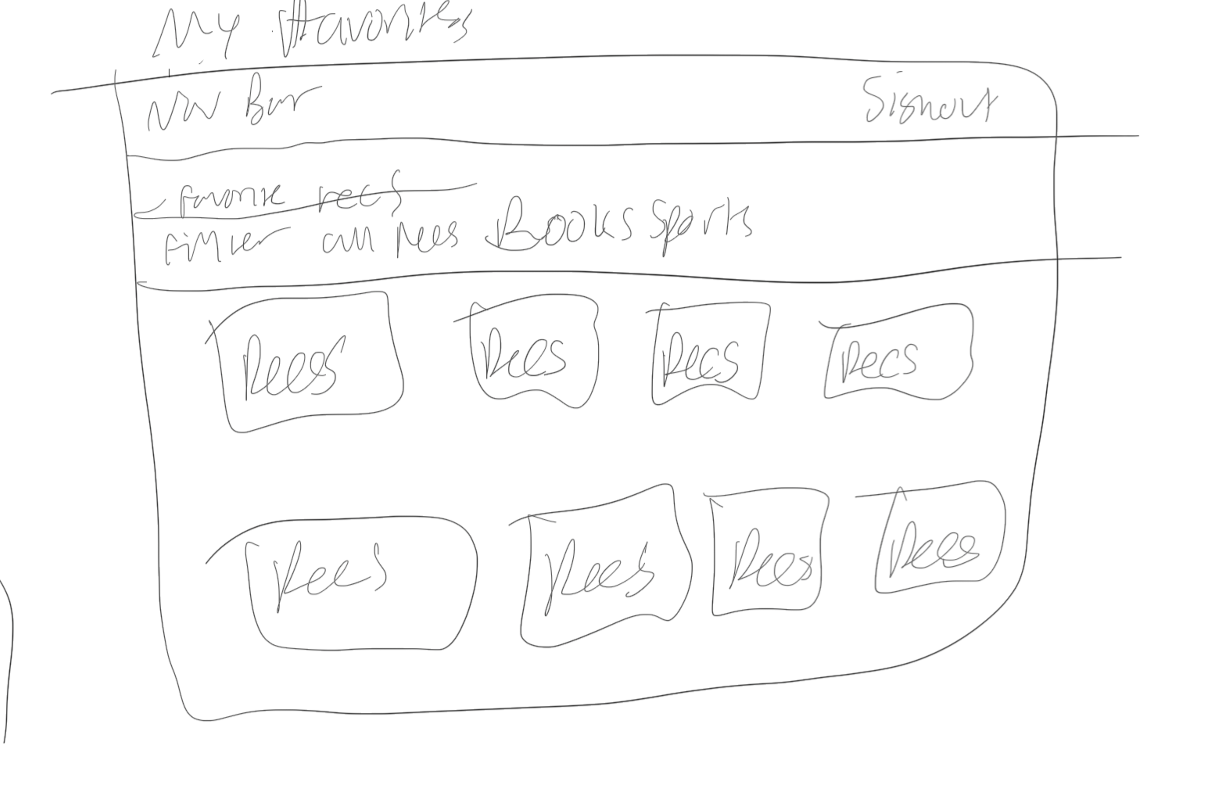 My Favorites
Nav Bar Signout
favorite recs
Filter all Recs Books Sports
Recs Recs Recs Recs
Recs Recs Recs Recs